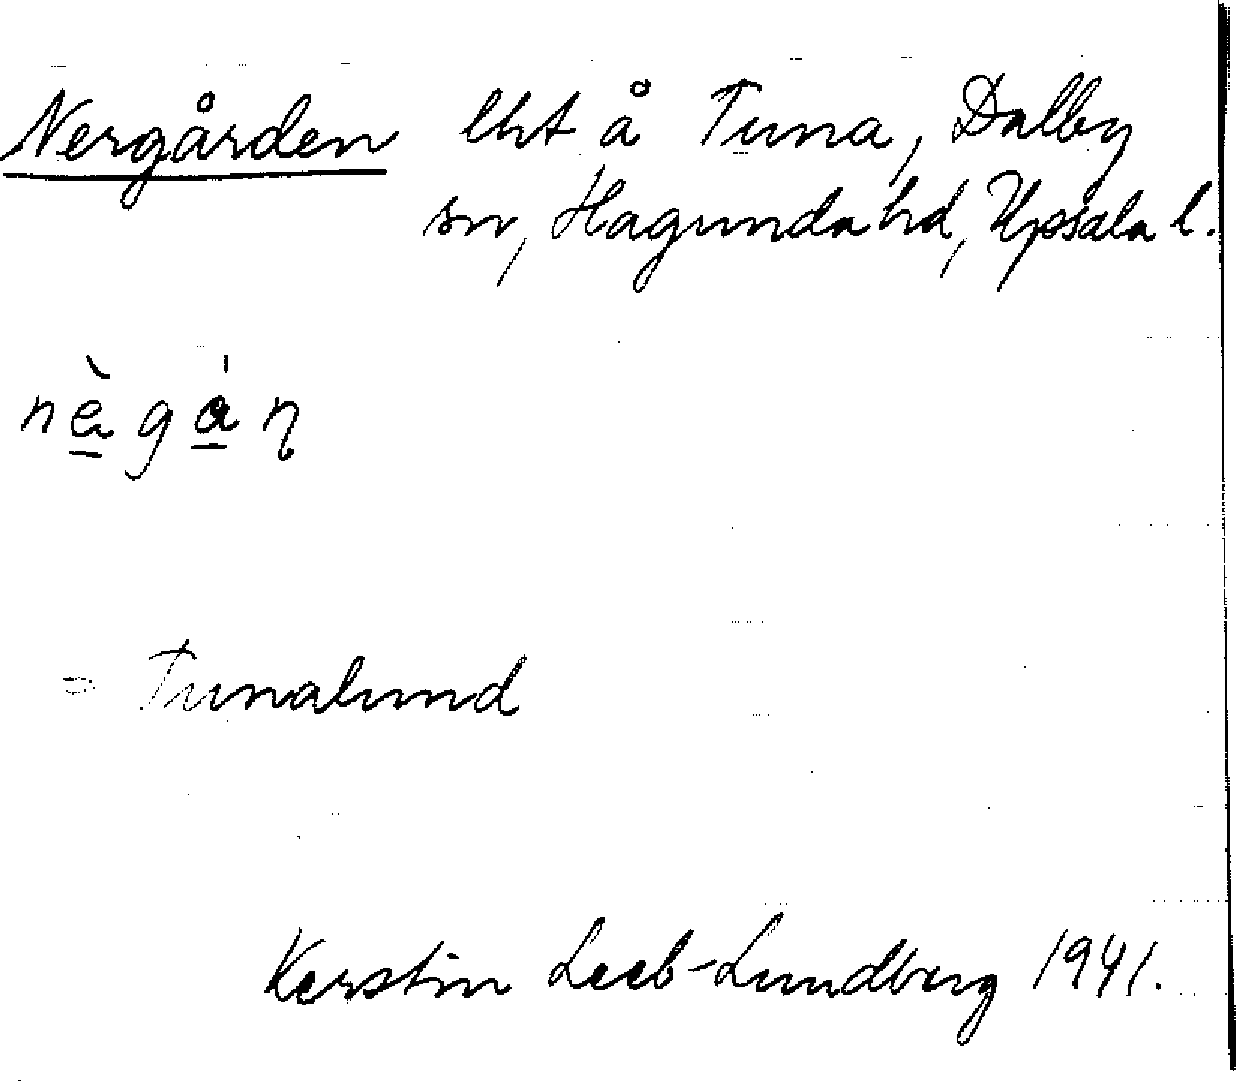 Nergården lht å Tuna, Dalby
sn, Hagunda hd, Upsala l.
nègán
= Tunalund
Kerstin Leeb-Lundberg 1941.